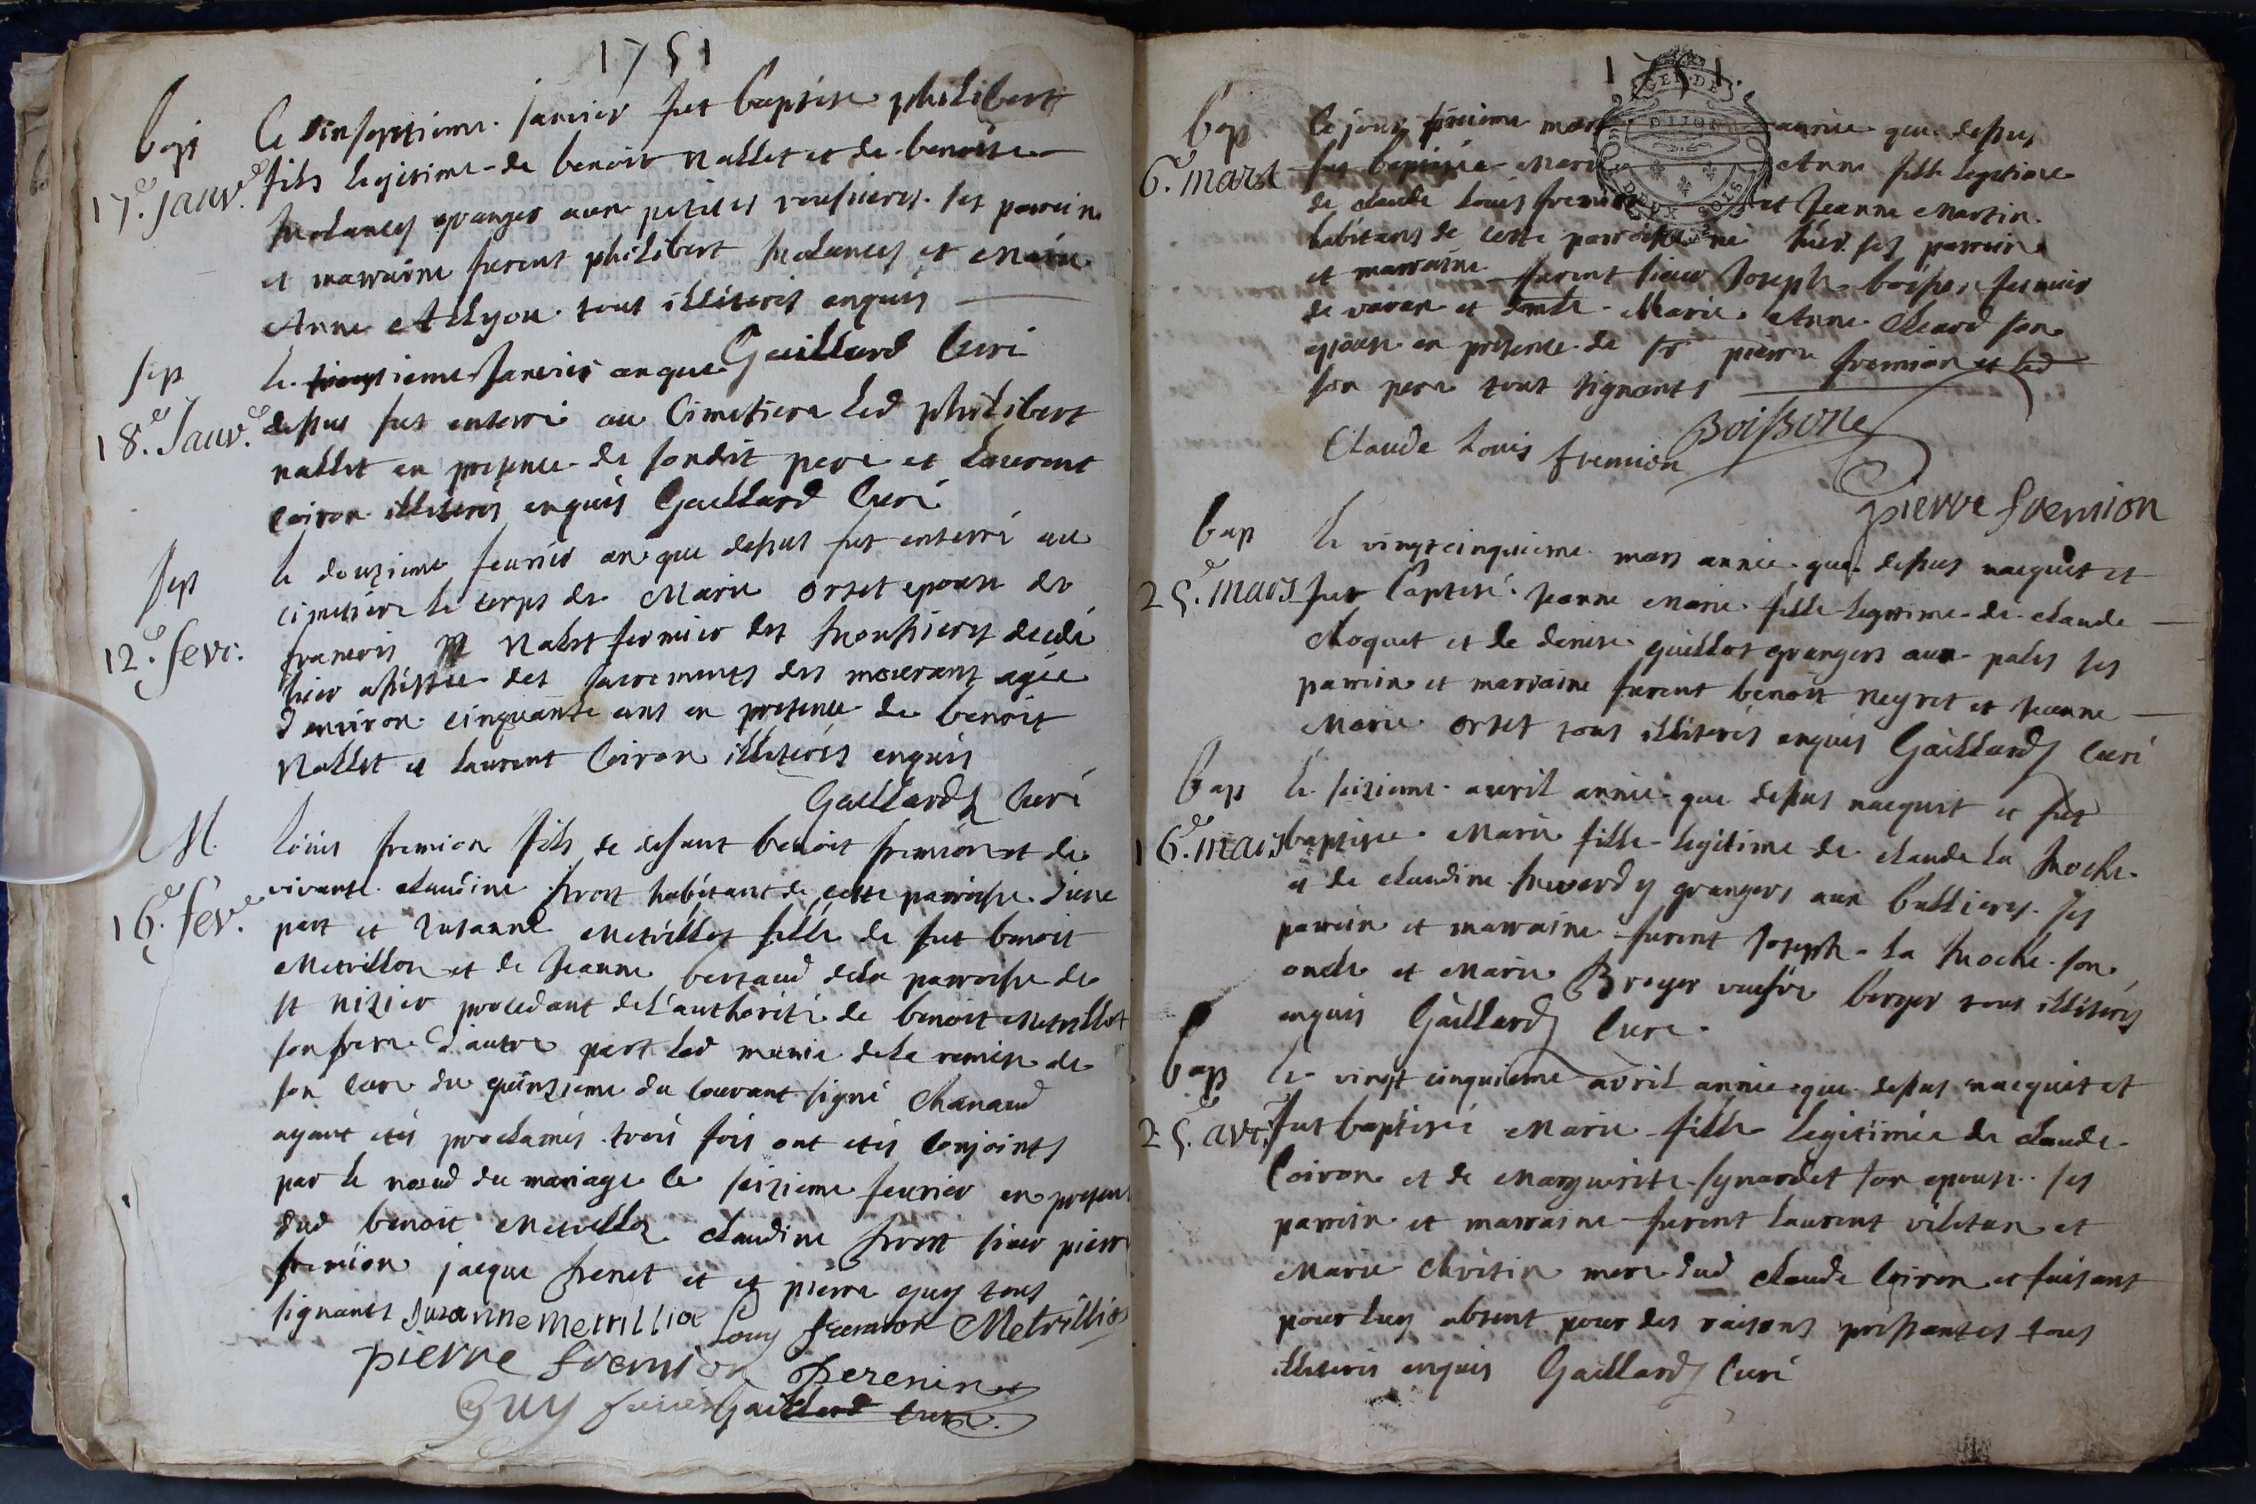 1751
bap
17.e janv.e
Ce dinseptieme janvier fut baptise philibert
fils legitime de benoit Nallet et de benoite
granger aux petites ses parrein
et marraine furent philibert et Marie
Anne Allyon tous illiteres enquis
Gaillard Curé
sep
18.e Janv.e
le janvier an que
dessus fut enterré au Cimetiere led philibert
nallet en presence de sondit pere et Laurent
Coiron illiteres enquis Gaillard Curé
sep
12.e fevr.
le douzieme fevrier an que dessus fut enterré au
cimetiere le corps de Marie orset epouse de
francois Nallet fermier des decedé
hier assistée des sacrements des mourants agée
d'environ cinquante ans en presence de benoit
Nallet et Laurent Coiron illiterés enquis
Gaillard Curé
M.
16.e fev.e
Loüis fremion fils de defunt benoit fremion et de
vivante claudine habitant de cette parroisse d'une
part et Susanne Metrillot fille de fut benoit
Metrillot et de Jeanne bertaud dela parroisse de
st nizier procedant de l'authorité de benoit Metrillot
son frere d'autre part led munie dela remise de
son Curé du quinzieme du courant signé Chanaud
ayant etés proclamés trois fois ont etés Conjoints
par le noeud du mariage le seizieme fevrier en presence
dud benoit Metrillot claudine sieur pierre
fremion jacque et et pierre guy tous
signants Suzanne metrilliot Louy fremion Metrilliot
pierre fremion perenin
Guy Gaillard Curé
1751.
GEN. DE
DIJON
DEUX SOLS
bap
6.e mars
Ce jour sixieme mars année que dessus
fut baptisée Marie Anne fille legitime
de claude Louis fremion et Jeanne Martin
habitans de cette parroisse né hier ses parrein
et marraine furent sieur Joseph fermier
de varan et Marie Anne son
epouse en presence de sr pierre fremion et led
son pere tout signants
Claude Louis fremion Boissone
pierre fremion
bap
25.e mars
le vingtcinquieme mars année que dessus nacquit et
fut baptisé Jeanne Marie fille legitime de claude
choquet et de denise guillot grangers aux pales ses
parrein et marraine furent benoit neyret et Jeanne
Marie orset tous illiterés enquis Gaillard Curé
bap
16.e mars
le seizieme avril année que dessus nacquit et fut
baptisée Marie fille legitime de claude la
et de claudine grangers aux bussieres ses
parrein et marraine furent Joseph la son
oncle et Marie Broyer berger tous illiterés
enquis Gaillard Curé.
bap
25. avr.
le vingt cinquieme avril année que dessus nacquit et
fut baptisée Marie fille legitimée de claude
Coiron et de Marguerite synardet son epouse ses
parrein et marraine furent Laurent viletan et
Marie Chritin mere dud claude Coiron et faisant
pour luy absent pour des raisons pressantes tous
illiterés enquis Gaillard Curé